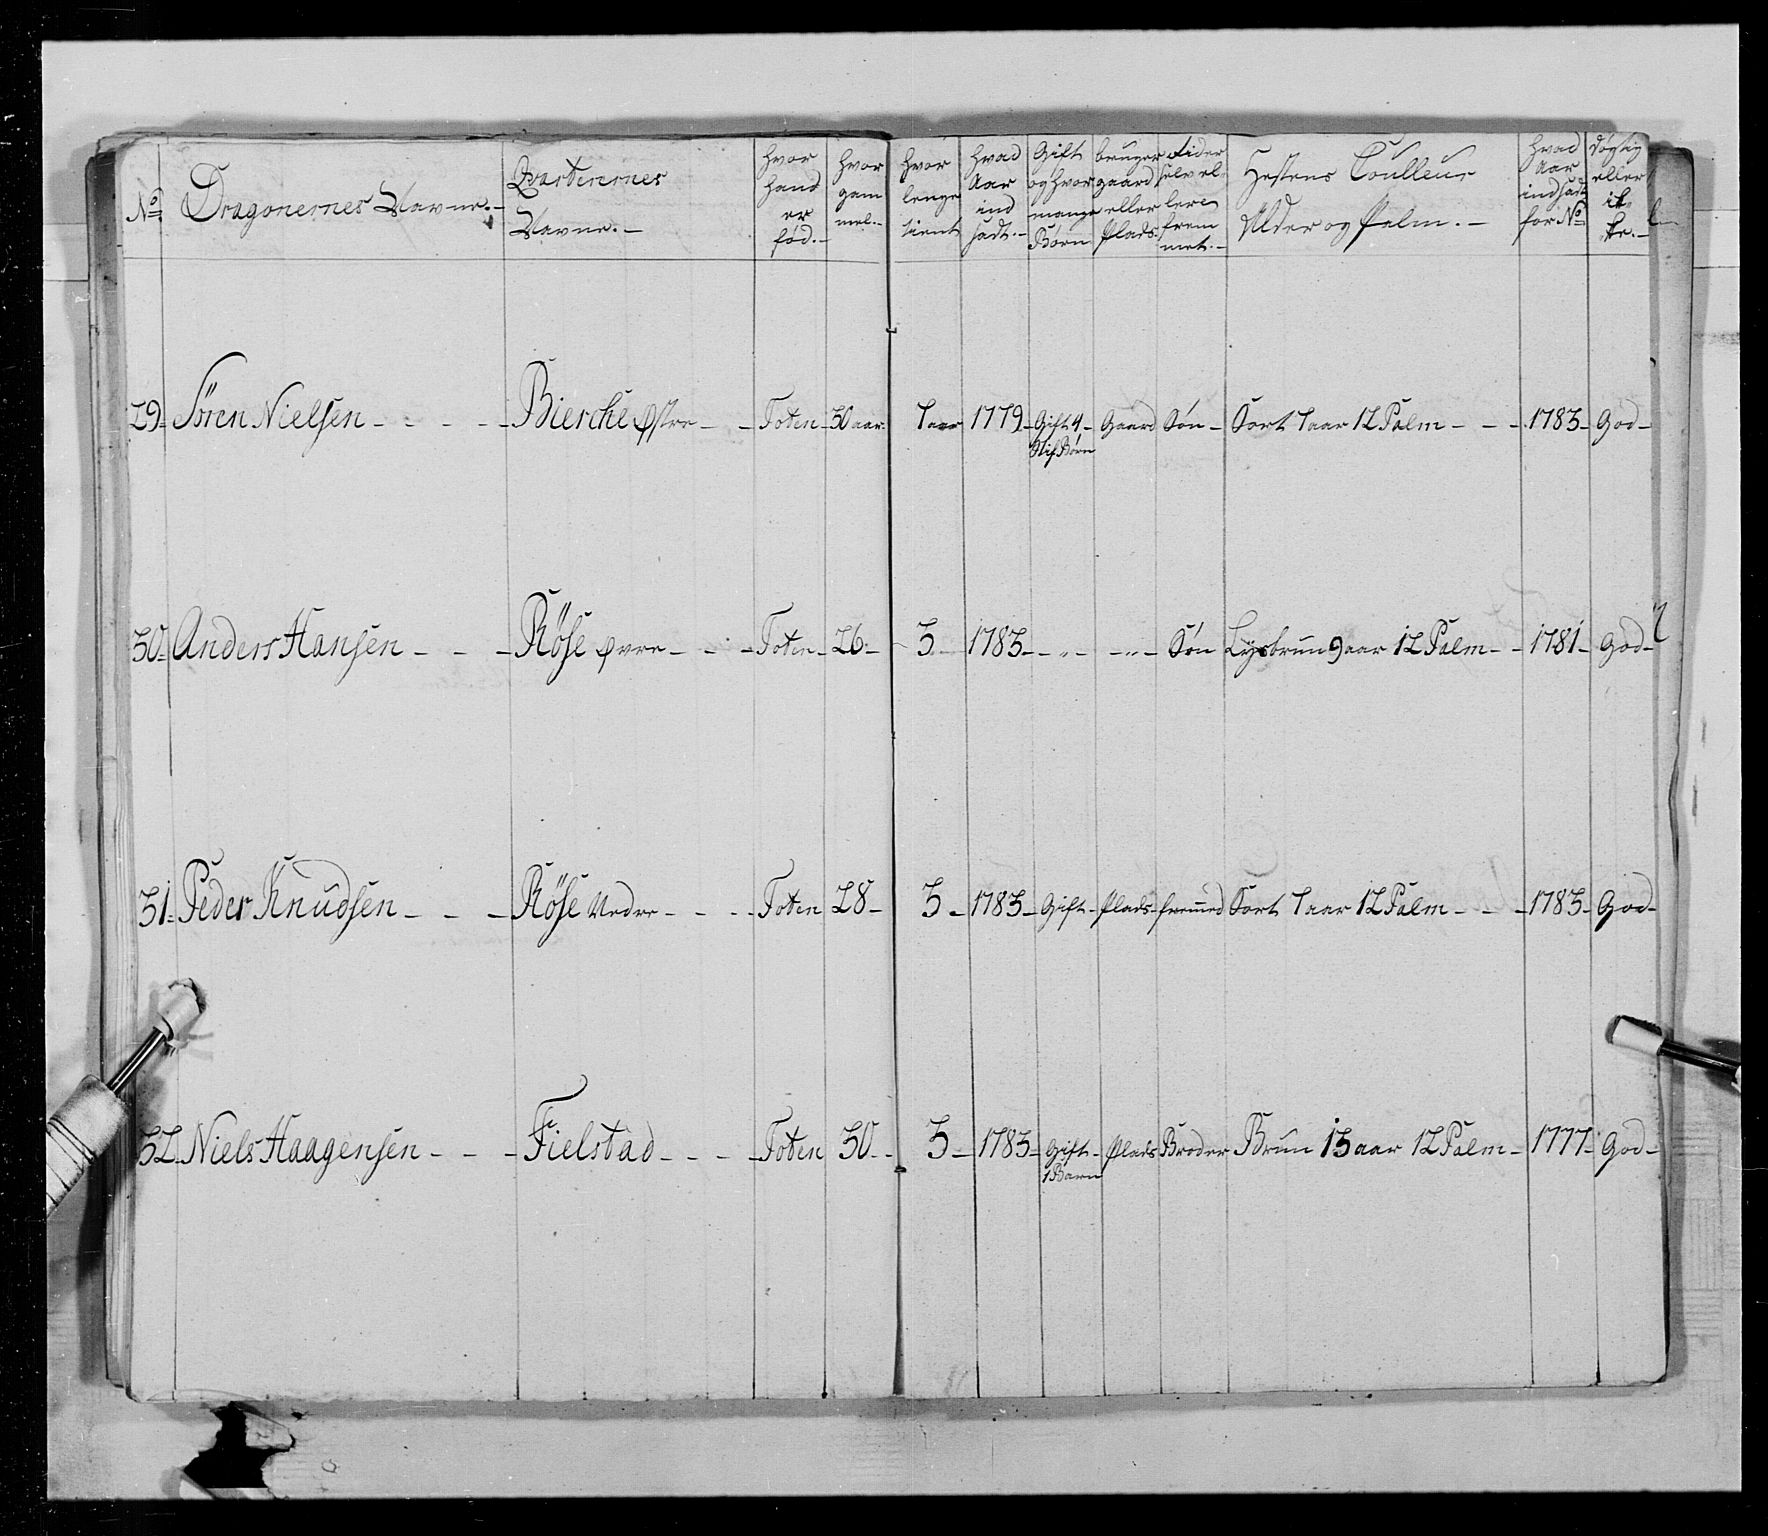 No Dragonernes Navne.- Qvarterernes Navne.- hvor hand er fød.- hvor gammel.- hvor lenge tient hvad Aar ind sadt.- Gift og hvor mange Børn bruger gaard eller Plads. Rider selv eller frem met.- Hestens Coulleur Alder og Palm.- hvad Aar ind sadt for No døgtig eller ikke.-
29- Sören Nielsen - - - - - Bierche Østre - - Toten - 30 aar - 7 aar 1779 - Gift 4 - Gaard Søn - Sort 7 aar 12 Palm - - - 1783 - God -
Stif Børn
30 - Anders Hansen - - - Röse Øvre - - - Toten - 26 - 3 - 1783 - - „ - - „ - Søn Lysbrun 9 aar 12 Palm - - 1781 - God -
31 - Peder Knudsen - - - Röse Nedre - - - - Toten 28 - 3 - 1783 - Gift - Plads - fremmed Sort 7 aar 12 Palm - - - 1783 - God -
32 - Niels Haagensen - - - Fielstad - - - - Toten 30 - - 3 - 1783 - Gift - Plads Broder Brun 13 aar 12 Palm - 1777 - God -
1 Barn